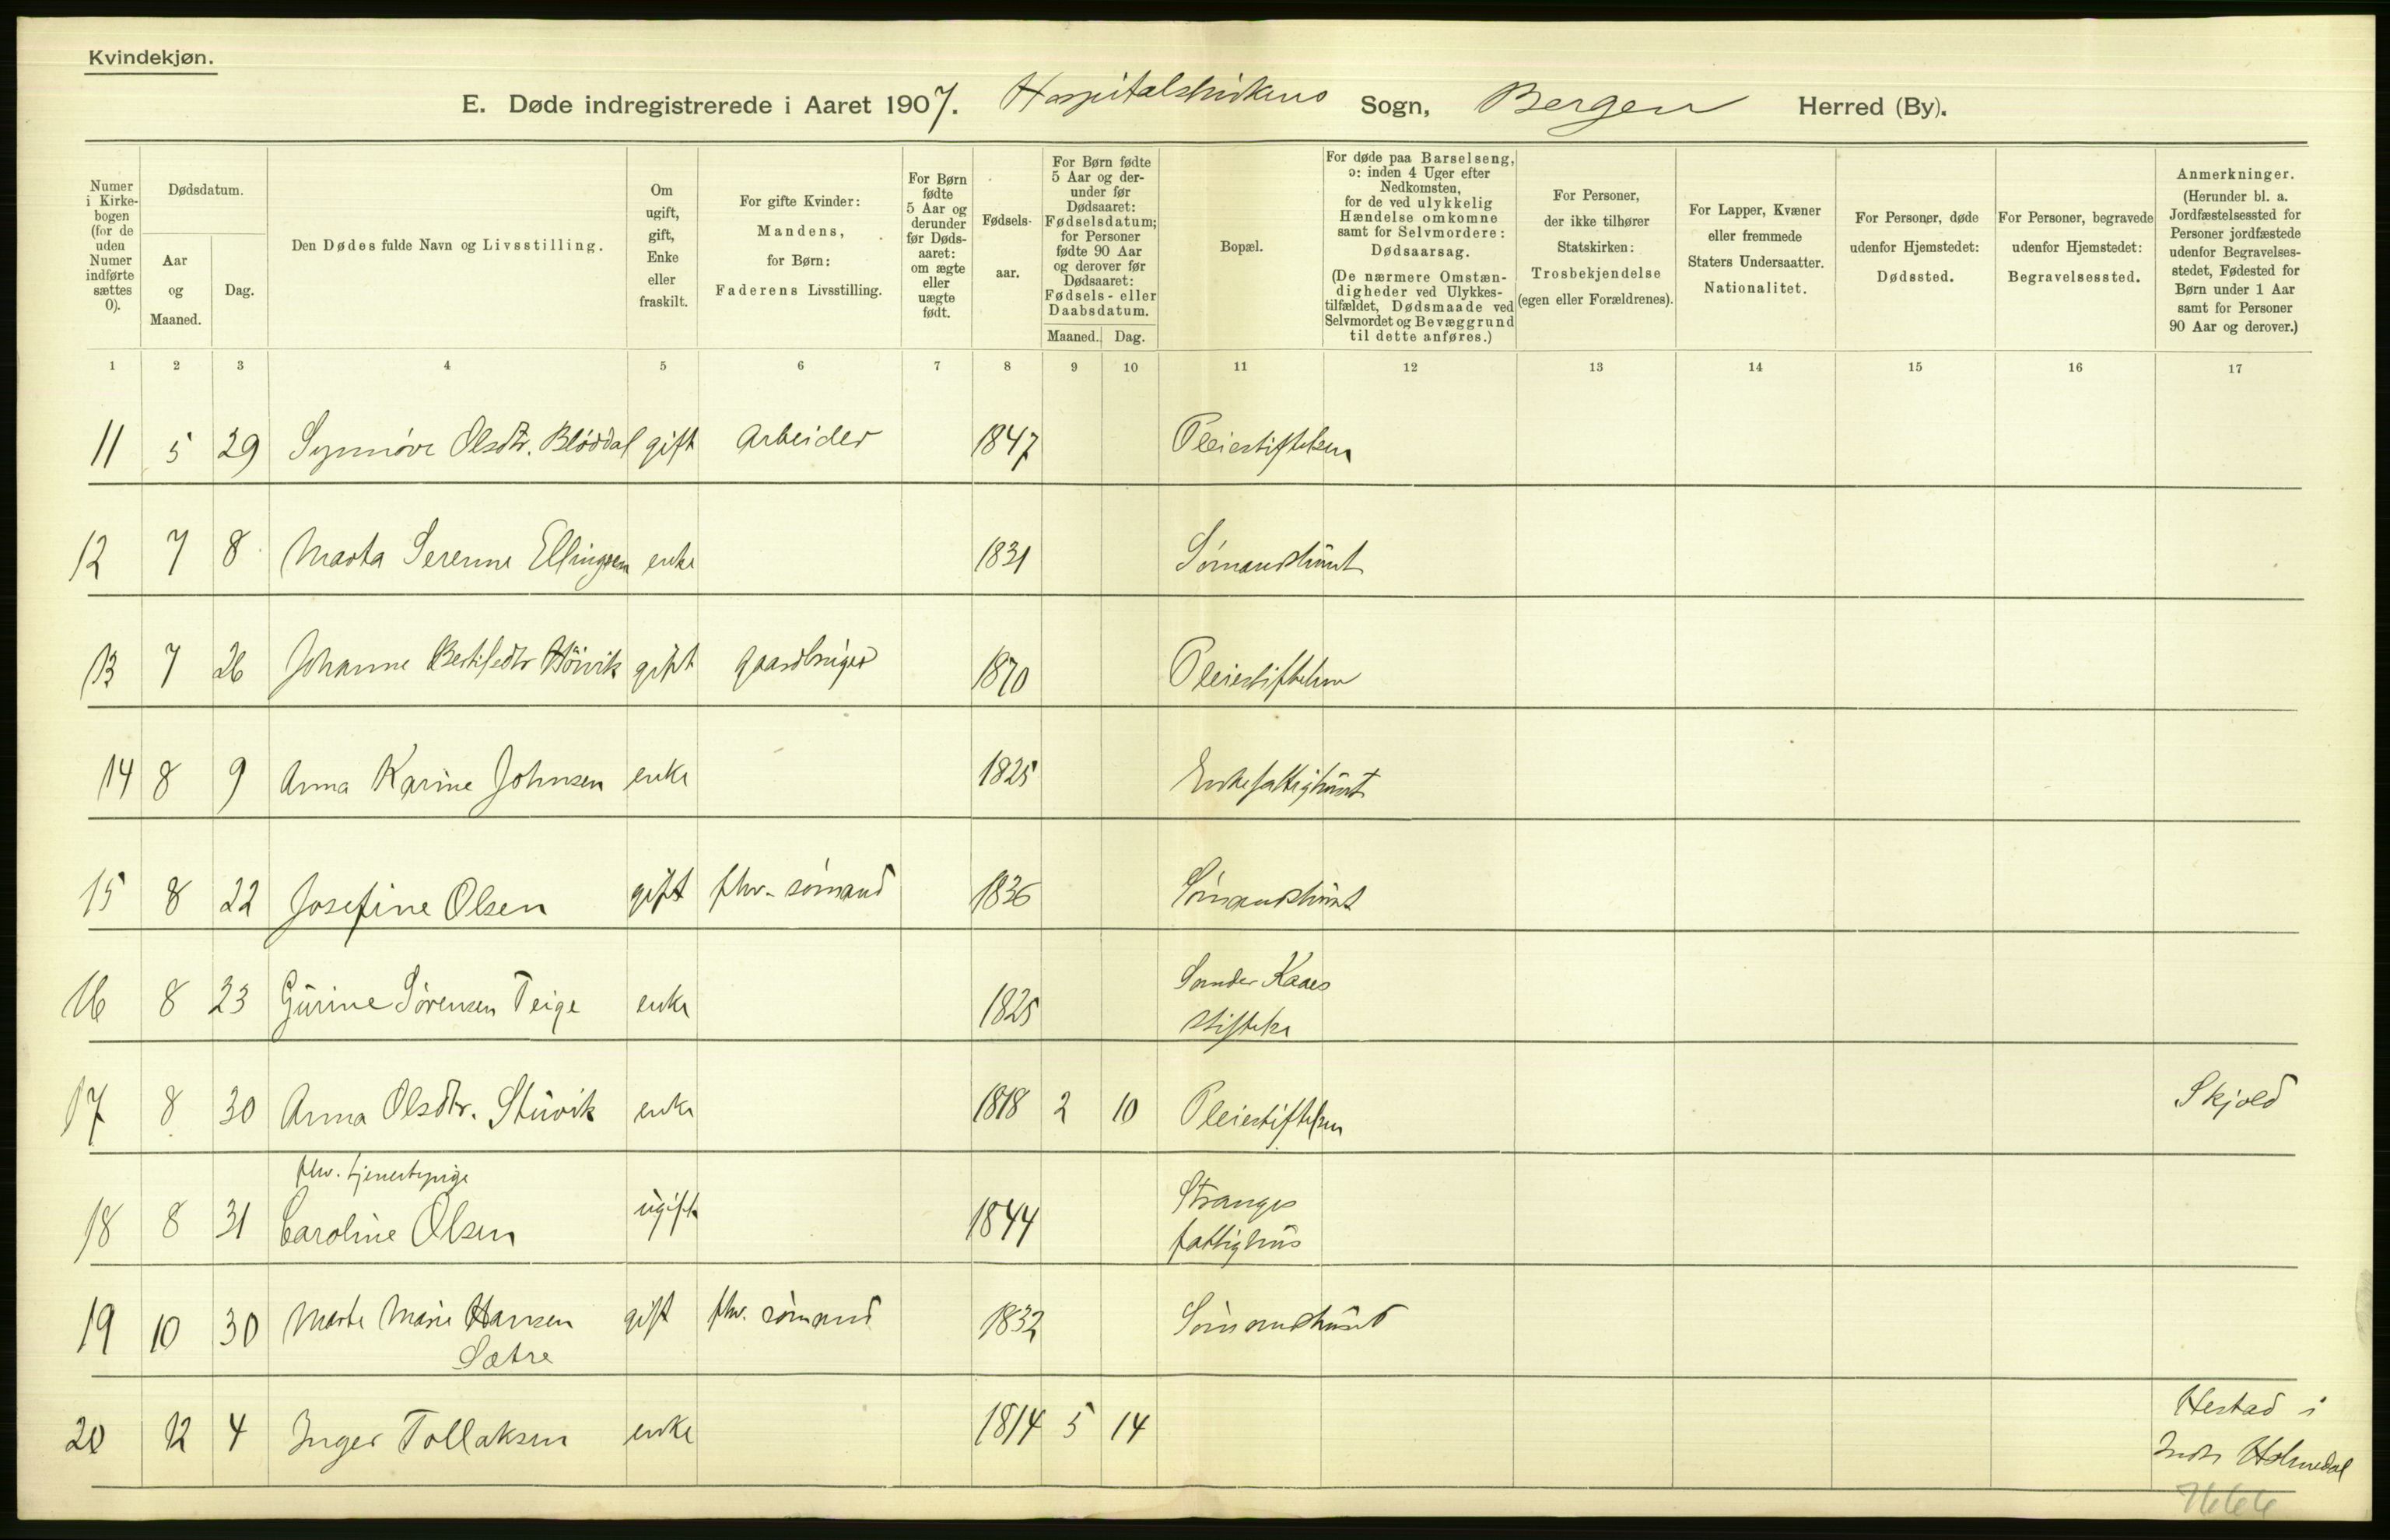 Kvindekjøn.
E. Døde indregistrerede i Aaret 1907. Hospitalskirkens Sogn, Bergen Herred (By).
Numer i Kirkebogen (for de uden Numer indførte sættes 0).
Dødsdatum.
Aar og Maaned.
Dag.
Den Dødes fulde Navn og Livsstilling.
Om ugift, gift, Enke eller fraskilt.
For gifte Kvinder: Mandens, for Børn: Faderens Livsstilling.
For Børn fødte 5 Aar og derunder før Dødsaaret: om ægte eller uægte født.
Fødselsaar.
For Børn fødte 5 Aar og derunder før Dødsaaret: Fødselsdatum; for Personer fødte 90 Aar og derover før Dødsaaret: Fødsels- eller Daabsdatum.
Maaned. Dag.
Bopæl.
For døde paa Barselseng, ɔ: inden 4 Uger efter Nedkomsten, for de ved ulykkelig Hændelse omkomne samt for Selvmordere: Dødsaarsag. (De nærmere Omstændigheder ved Ulykkestilfældet, Dødsmaade ved Selvmordet og Bevæggrund til dette anføres.)
For Personer, der ikke tilhører Statskirken: Trosbekjendelse (egen eller Forældrenes).
For Lapper, Kvæner eller fremmede Staters Undersaatter. Nationalitet.
For Personer, døde udenfor Hjemstedet: Dødssted.
For Personer, begravede udenfor Hjemstedet: Begravelsessted.
Anmerkninger. (Herunder bl. a. Jordfæstelsessted for Personer jordfæstede udenfor Begravelsesstedet, Fødested for Børn under 1 Aar samt for Personer 90 Aar og derover.)
1 2 3 4 5 6 7 8 9 10 11 12 13 14 15 16 17
11 5 29 Synnöve Olsdtr. Blöddal gift Arbeider 1847 Pleiestiftelsen
12 7 8 Marta Serenne Ellingsen enke 1831 Sömandshuset
13 7 26 Johanne Bertilsdtr Höivik gift gaardbruger 1870 Pleiestiftelsen
14 8 9 Anna Karine Johnsen enke 1825 Enkefattighuset
15 8 22 Josefine Olsen gift fhv. sömand 1836 Sömandshuset
16 8 23 Gurine Sörensen Teige enke 1825 Sander Kaaes
stiftelse
17 8 30 Anna Olsdtr. Stuvik enke 1818 2 10 Pleiestiftelsen Skjold
fhv. tjenestepige
18 8 31 Caroline Olsen ugift 1844 Stranges
fattighus
19 10 30 Marte Marie Hansen gift fhv. sömand 1832 Sömandshuset
Sætre
20 12 4 Inger Tollaksen enke 1814 5 14 Hestad i
Indre Holmedal